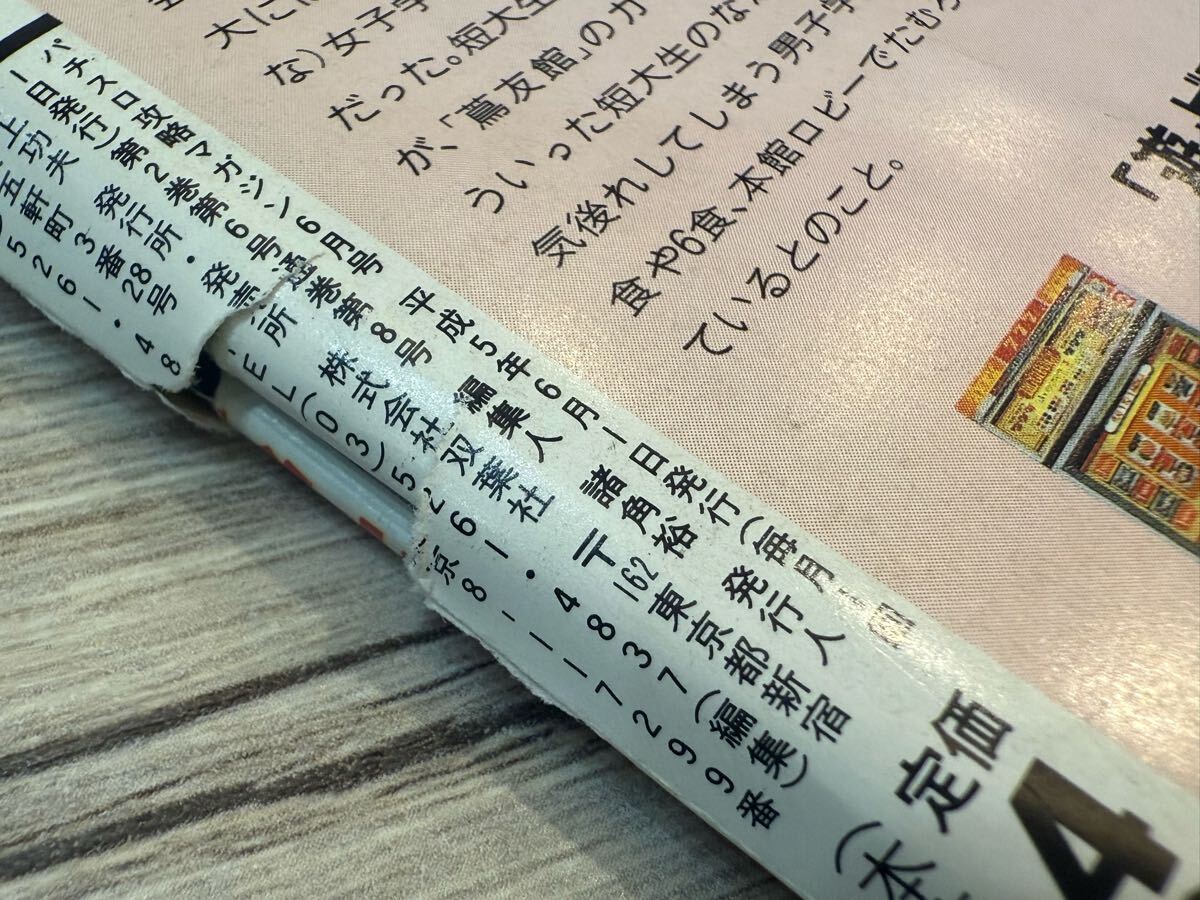 大に
な)女子学
だった。短大生
が、「蔦友館」のカ
ういった短大生のな
気後れしてしまう男子学
食や6食、本館ロビーでたむ
ているとのこと。
パチスロ攻略マガジン6月号 平成5年6月1日発行(毎月
1日発行)第2巻第6号通巻第8号 編集人 諸角裕 発行人
上功夫 発行所・発売所 株式会社双葉社 〒162東京都新宿
五軒町3番28号 EL(03)5261・4837(編集)
5261・48 京8-117299番
定価
4
(本